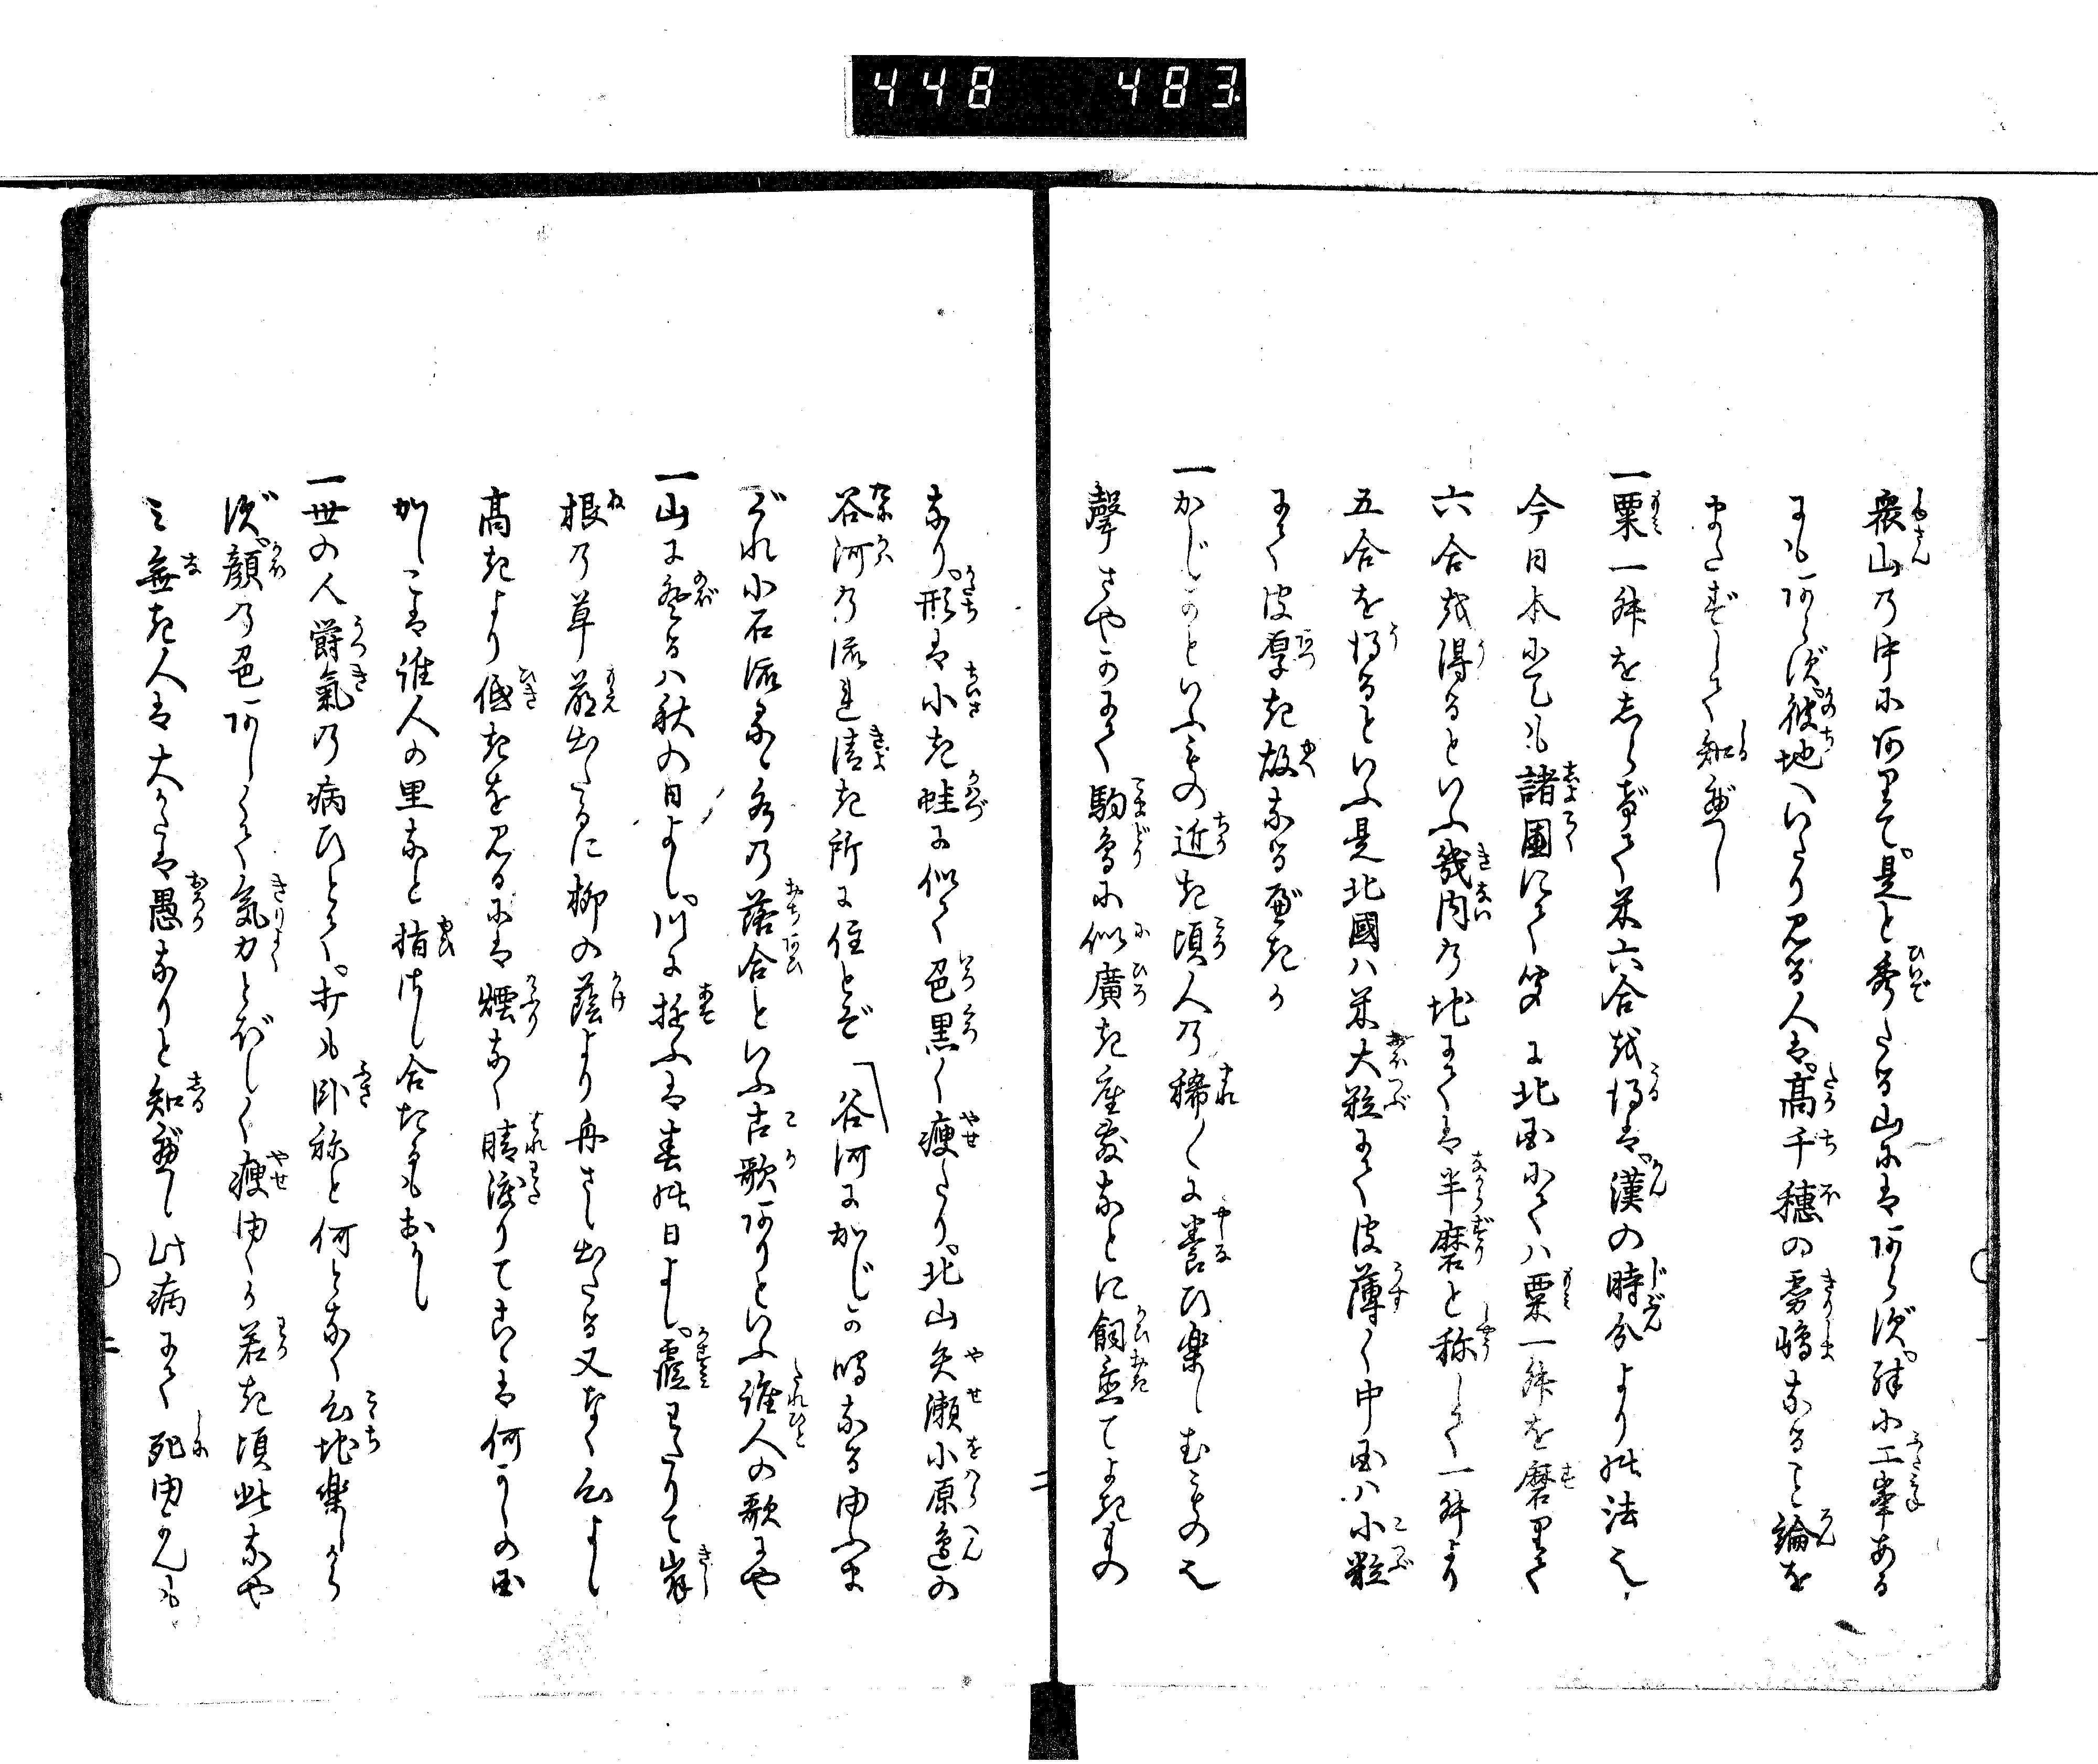 448 483
衆山の中に有て是と秀たる山にはあらず。殊に二峯ある
にもあらず彼地へいたり見る人は高千穂の雾嶋なること論を
またずして知べし
一粟一舛をしらげて米六合を得るは漢の時分よりの法也
今日本にても諸国にて聞に北国にては粟一舛を磨りて
六合を得るといふ畿内の地にては半磨と称して一舛より
五合を得るといふ是北國は米大粒にて皮薄く中国は小粒
にて皮厚き故なるべきか
一かじかといふもの近き頃人の稀々に養ひ楽しむもの也
聲さやかにて駒鳥に似廣き座敷などに飼置てよきもの
なり形は小き蛙に似て色黒く瘦たり北山矢瀬小原邊の
谷河の流れ清き所に住とぞ「谷河にかじか鳴なるゆふま
ぐれ小石流るゝ水の落合といふ古歌ありといふ誰人の歌にや
一山に登るは秋の日よし川に遊ふは春の日よし霞わたりて岸
根の草萌出たるに柳の蔭より舟さし出たる又なく心よし
高きより低きを見るには煙なく晴渡りてこゝは何かしの国
かしこは誰人の里なと指さし合たるもおかし
一世の人欝氣の病ひとて打も臥ねと何となく心地楽しから
ず顔の色あしくて気力とぼしく瘦ゆくか若き頃此なや
み無き人は大かたは愚なりと知べし此病にて死ゆくも